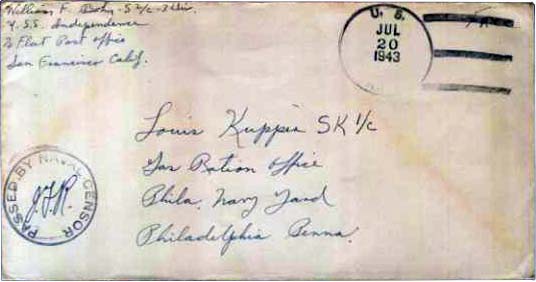 William F. S 2/c - 3 Div.
U.S.S. Independence
℅ Flat Post Office
San Francisco Calif.
U. S.
JUL
20
1943
Louis Kuppis SK 1/c
Gas Ration Office
Phila. Navy Yard
Philadelphia Penna.
PASSED BY NAVAL CENSOR
J.F.R.